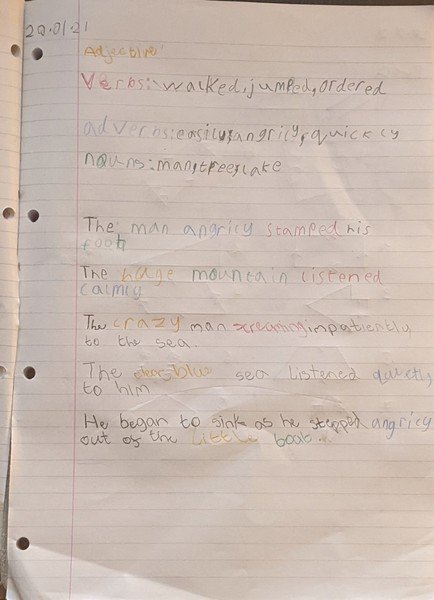 20.01.21
Adjective:
Verbs: walked, jumped, ordered
adverbs: easily, angrily, quickly
nouns: man, tree, lake
The man angrily stamped his
foot
The huge mountain listened
calmly
The crazy man screaming inpatiently
to the sea.
The blue sea listened quietly
to him
He began to sink as he stepped angrily
out of the little boat.